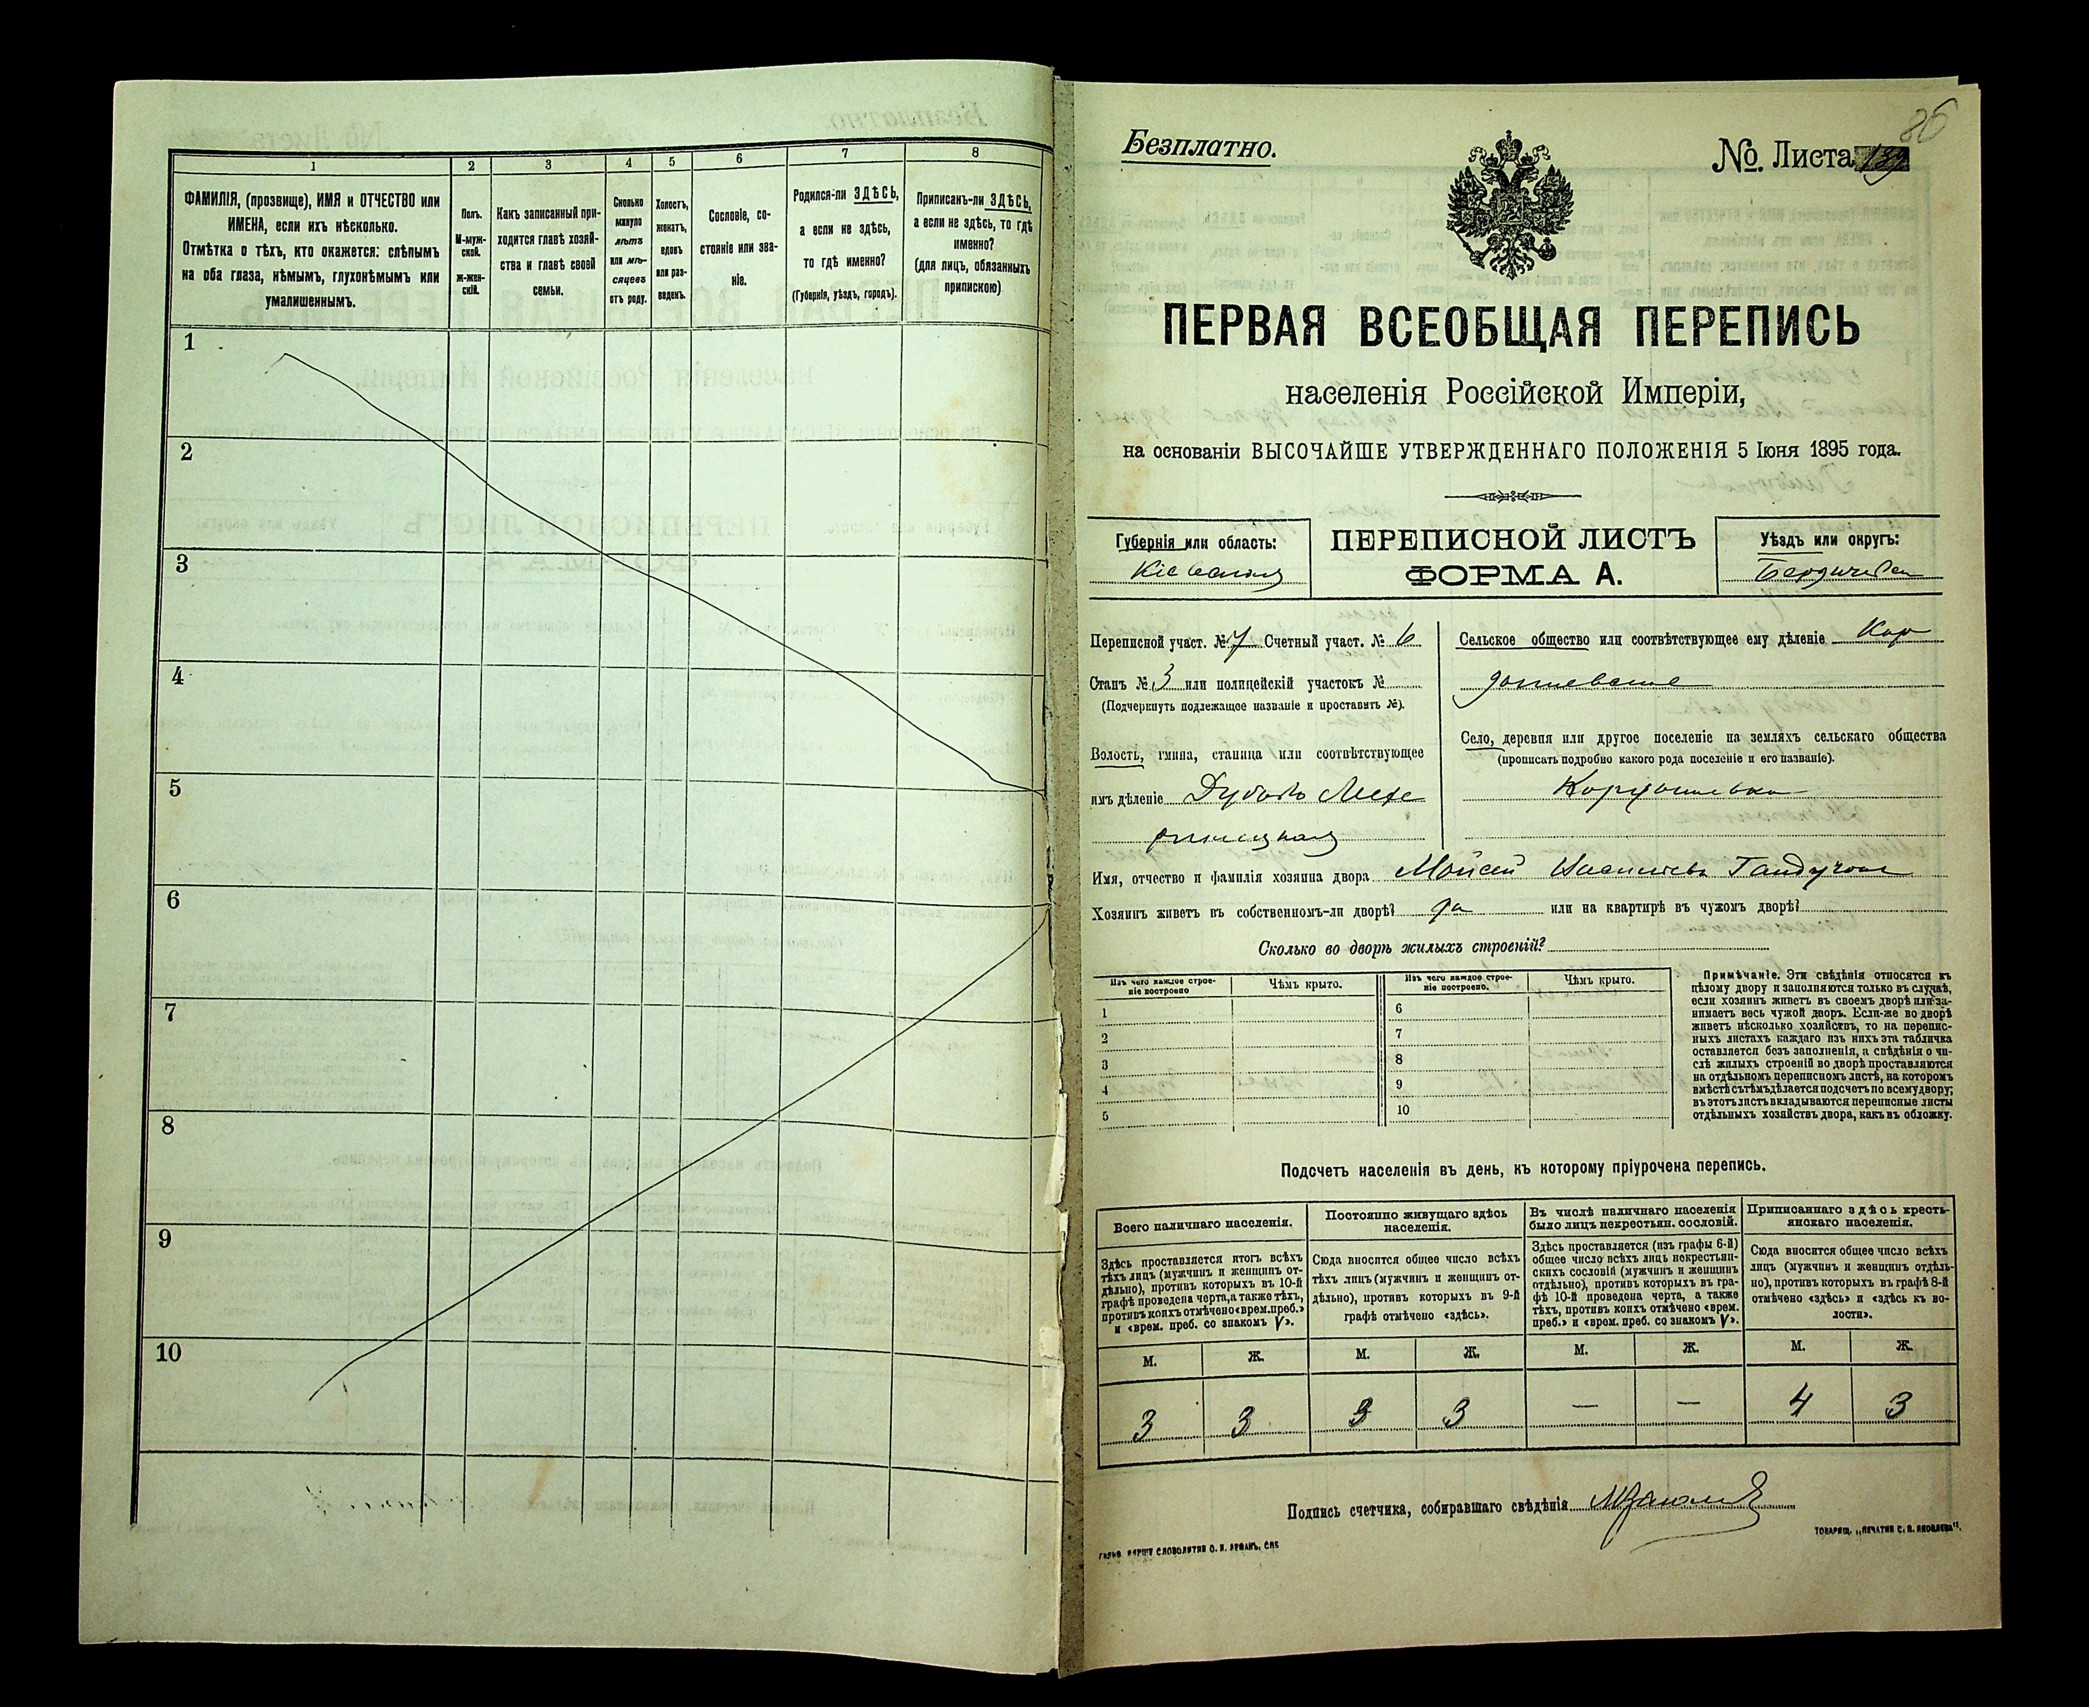 1 2 3 4 5 6 7 8
ФАМИЛІЯ, (прозвище), ИМЯ и ОТЧЕСТВО или
ИМЕНА, если ихъ нѣсколько.
Отмѣтка о тѣхъ, кто окажется: слѣпымъ
на оба глаза, нѣмымъ, глухонѣмымъ или
умалишеннымъ.
Полъ.
М-муж-
ской.
Ж-жен-
скій.
Какъ записанный при-
ходится главѣ хозяй-
ства и главѣ своей
семьи.
Сколько
минуло
лѣтъ
или мѣ-
сяцевъ
отъ роду.
Холостъ,
женатъ,
вдовъ
или раз-
веденъ.
Сословіе, со-
стояніе или зва-
ніе.
Родился-ли ЗДѢСЬ,
а если не здѣсь,
то гдѣ именно?
(Губернія, уѣздъ, городъ).
Приписанъ-ли ЗДѢСЬ,
а если не здѣсь, то гдѣ
именно?
(для лицъ, обязанныхъ
припискою)
1
2
3
4
5
6
7
8
9
10
86
Безплатно.
№ Листа 139
ПЕРВАЯ ВСЕОБЩАЯ ПЕРЕПИСЬ
населенія Россійской Имперіи,
на основаніи ВЫСОЧАЙШЕ УТВЕРЖДЕННАГО ПОЛОЖЕНІЯ 5 Іюня 1895 года.
Губернія или область:
Кіевская
ПЕРЕПИСНОЙ ЛИСТЪ
ФОРМА А.
Уѣздъ или округъ:
Бердичевск
Переписной участ. № 7 Счетный участ. № 6
Станъ № 3 или полицейскій участокъ №
(Подчеркнуть подлежащее названіе и проставить №).
Волость, гмина, станица или соотвѣтствующее
имъ дѣленіе
Сельское общество или соотвѣтствующее ему дѣленіе Кор
Село, деревня или другое поселеніе на земляхъ сельскаго общества
(прописать подробно какого рода поселеніе и его названіе).
Имя, отчество и фамилія хозяина двора Мойсей
Хозяинъ живетъ въ собственномъ-ли дворѣ? да или на квартирѣ въ чужомъ дворѣ?
Сколько во дворѣ жилыхъ строеній?
Изъ чего каждое строе-
ніе построено
Чѣмъ крыто.
Изъ чего каждое строе-
ніе построено.
Чѣмъ крыто.
1 6
2 7
3 8
4 9
5 10
Примѣчаніе. Эти свѣдѣнія относятся къ
цѣлому двору и заполняются только въ случаѣ,
если хозяинъ живетъ въ своемъ дворѣ или за-
нимаетъ весь чужой дворъ. Если-же во дворѣ
живетъ нѣсколько хозяйствъ, то на перепис-
ныхъ листахъ каждаго изъ нихъ эта табличка
оставляется безъ заполненія, а свѣдѣнія о чи-
слѣ жилыхъ строеній во дворѣ проставляются
на отдѣльномъ переписномъ листѣ, на которомъ
вмѣстѣ съ тѣмъ дѣлается подсчетъ по всему двору;
въ этотъ листъ вкладываются переписные листы
отдѣльныхъ хозяйствъ двора, какъ въ обложку.
Подсчетъ населенія въ день, къ которому пріурочена перепись.
Всего наличнаго населенія.
Здѣсь проставляется итогъ всѣхъ
тѣхъ лицъ (мужчинъ и женщинъ от-
дѣльно), противъ которыхъ въ 10-й
графѣ проведена черта, а также тѣхъ,
противъ коихъ отмѣчено «врем. преб.»
и «врем. преб. со знакомъ V».
Постоянно живущаго здѣсь
населенія.
Сюда вносится общее число всѣхъ
тѣхъ лицъ (мужчинъ и женщинъ от-
дѣльно), противъ которыхъ въ 9-й
графѣ отмѣчено «здѣсь».
Въ числѣ наличнаго населенія
было лицъ некрестьян. сословій.
Здѣсь проставляется (изъ графы 6-й)
общее число всѣхъ лицъ некрестьян-
скихъ сословій (мужчинъ и женщинъ
отдѣльно), противъ которыхъ въ гра-
фѣ 10-й проведена черта, а также
тѣхъ, противъ коихъ отмѣчено «врем.
преб.» и «врем. преб. со знакомъ V».
Приписаннаго здѣсь кресть-
янскаго населенія.
Сюда вносится общее число всѣхъ
лицъ (мужчинъ и женщинъ отдѣль-
но), противъ которыхъ въ графѣ 8-й
отмѣчено «здѣсь» и «здѣсь къ во-
лости».
М. Ж. М. Ж. М. Ж. М. Ж.
3 3 3 3 — — 4 3
Подпись счетчика, собиравшаго свѣдѣнія
ТОВАРИЩ. „ПЕЧАТНЯ С. П. ЯКОВЛЕВА“.